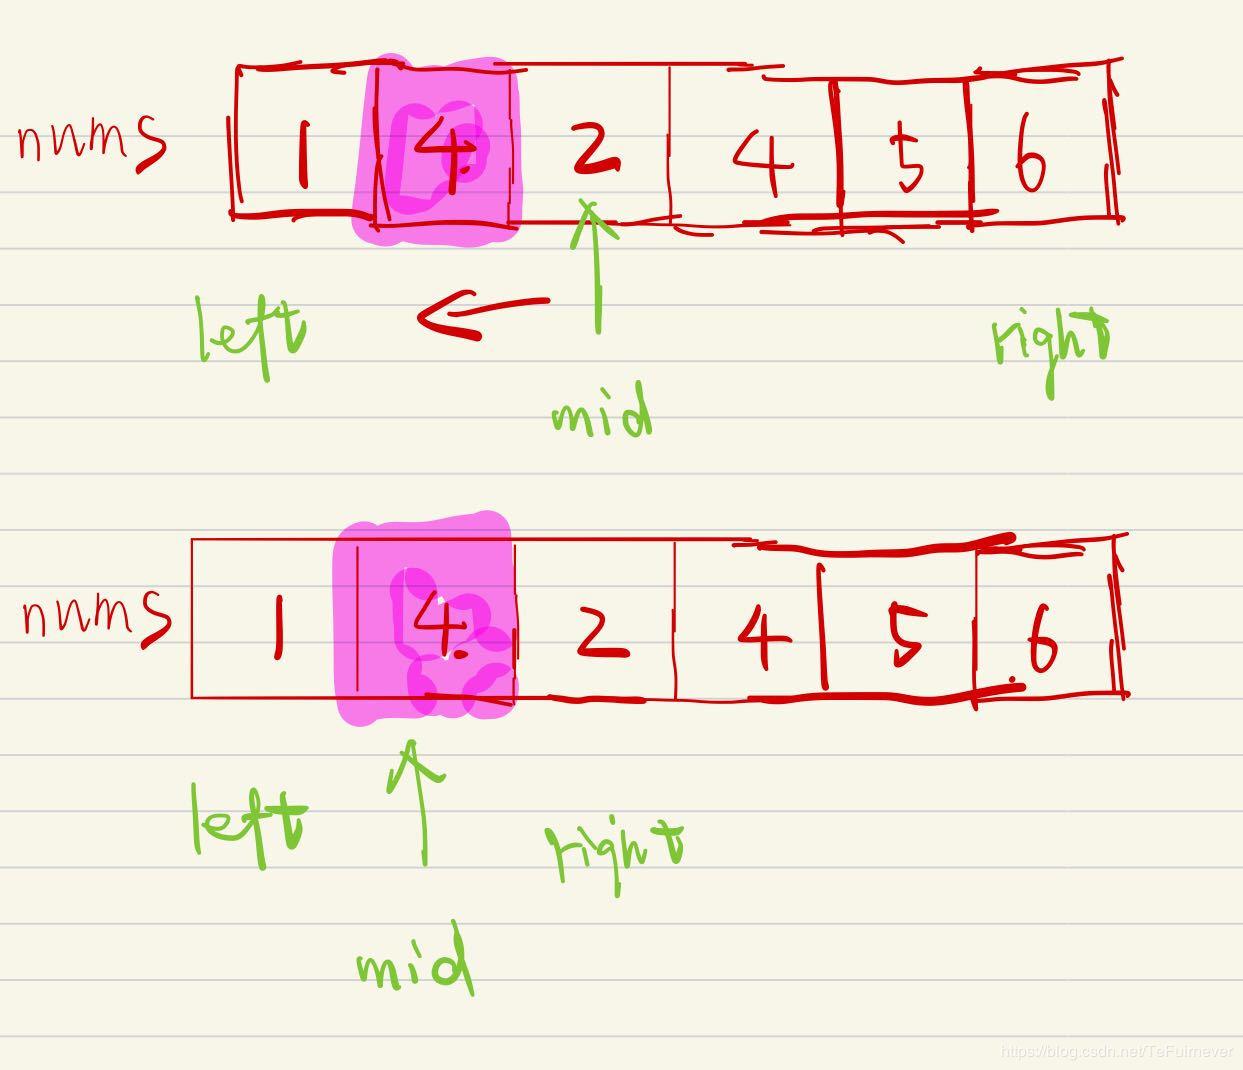 nums 1 4 2 4 5 6
left right
mid
nums 1 4 2 4 5 6
left right
mid
https://blog.csdn.net/TeFuirnever